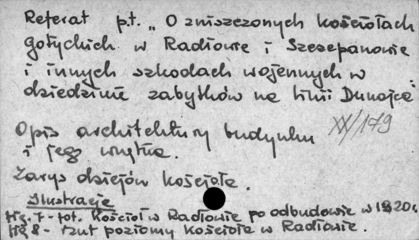 Referat p.t. „O zniszczonych kościołach
gotyckich w Radłowie i Szczepanowie
i innych szkodach wojennych w
dziedzinie zabytków na linii Dunajca"
Opis architektury budynku XX/179
i jego wnętrza.
Zarys dziejów kościoła.
Ilustracje
7 - fot. Kościoł w Radłowie po odbudowie w 1820r
8 - rzut poziomy Kościoła w Radłowie.